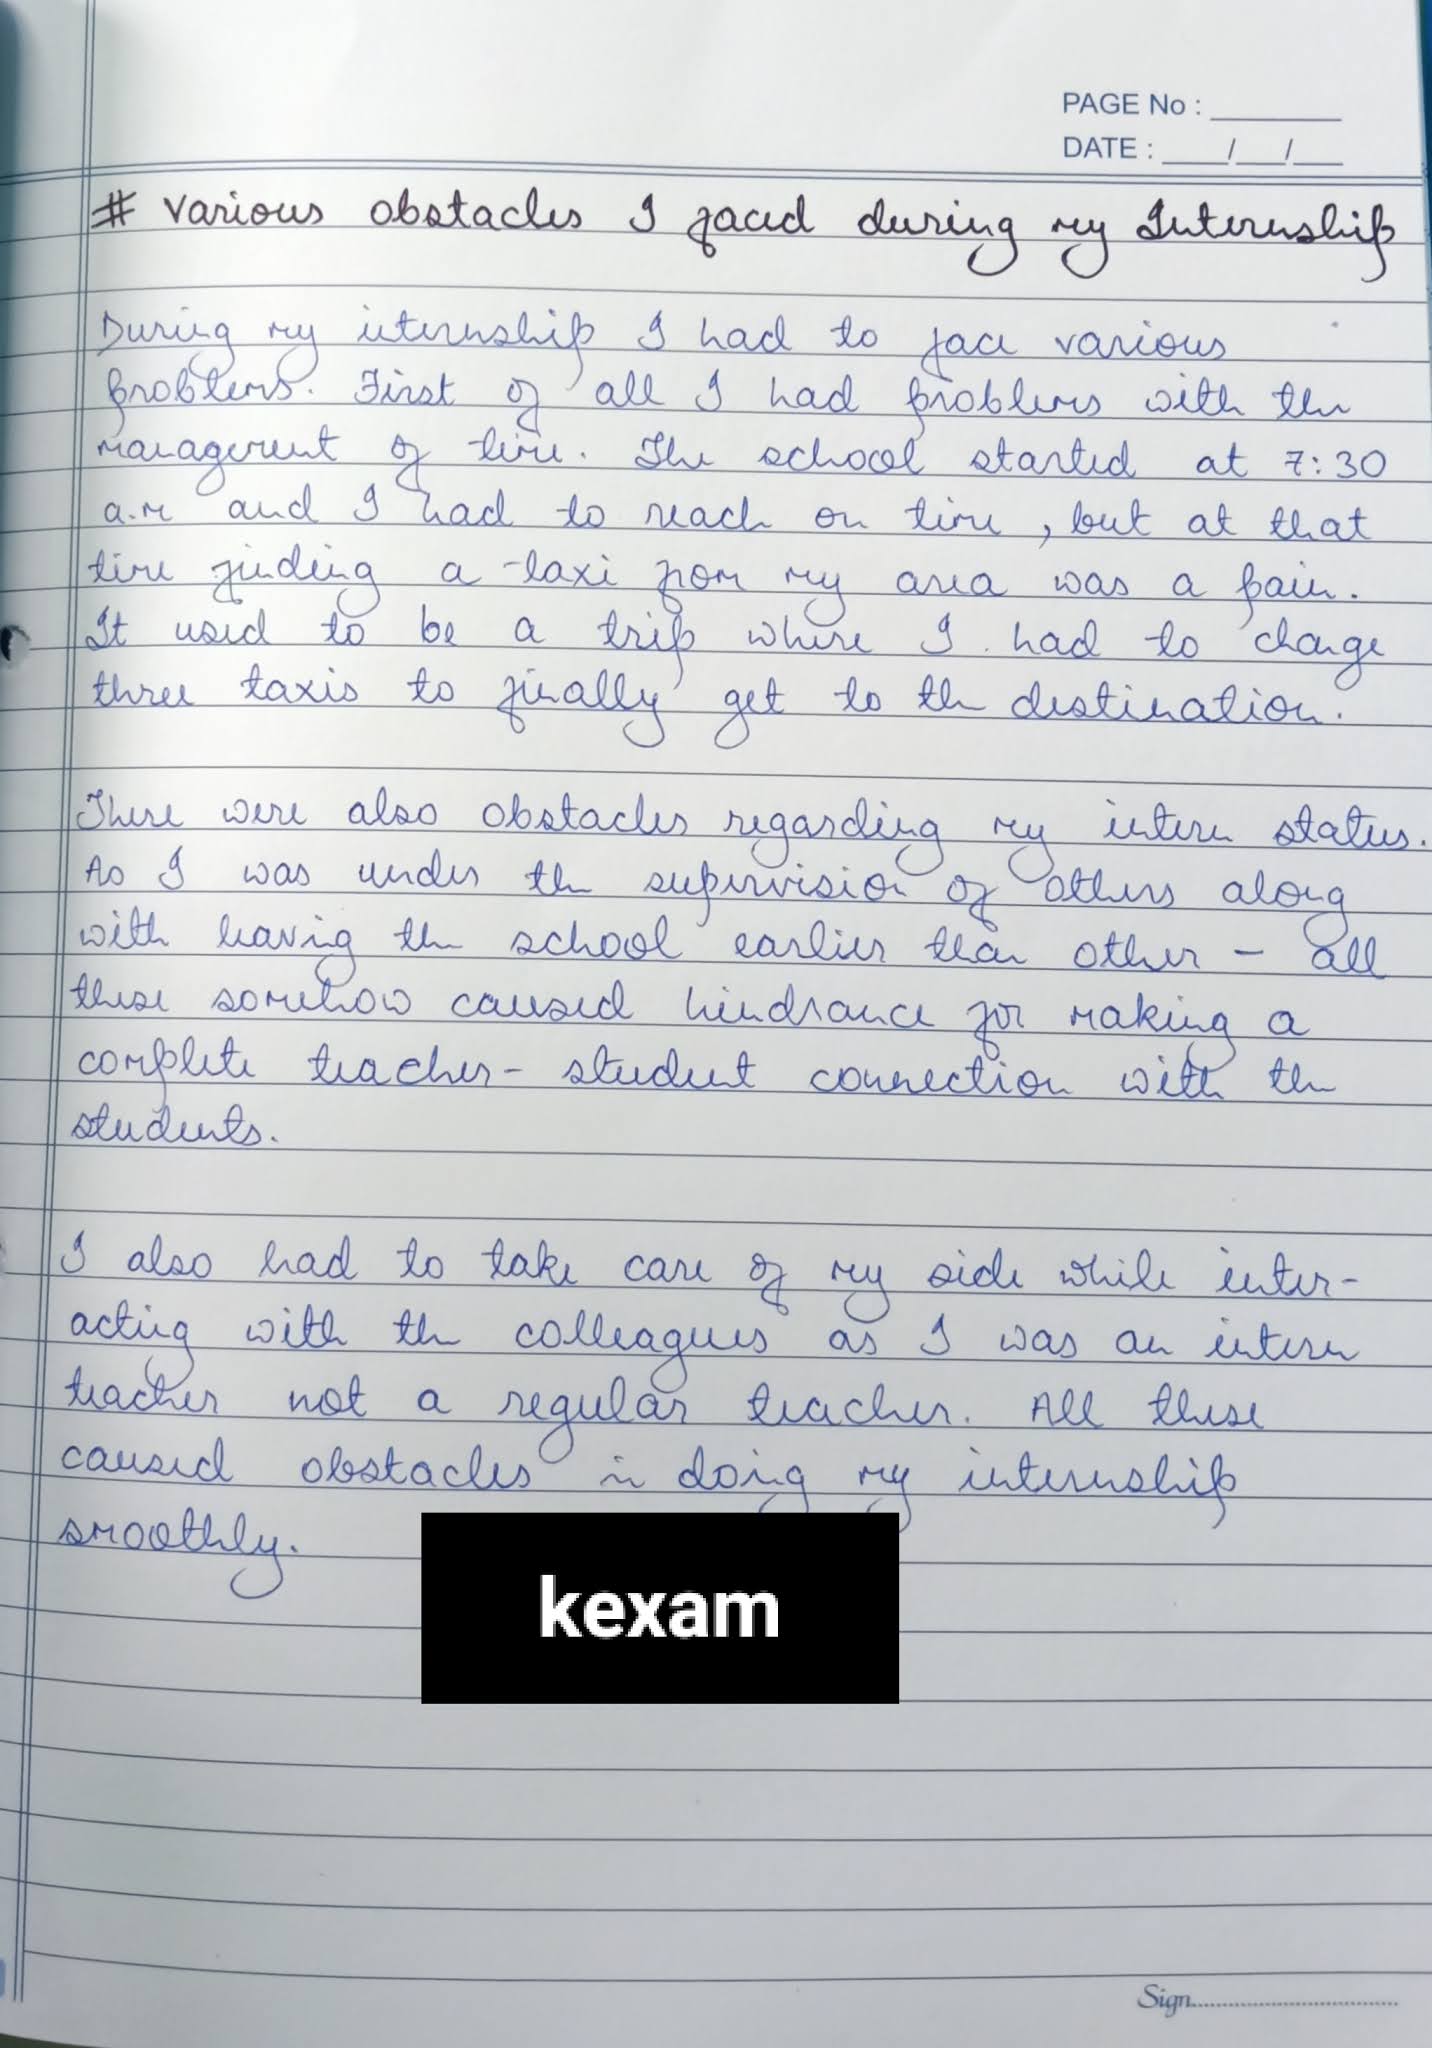 PAGE No :
DATE : / /
# Various obstacles I faced during my Internship
During my internship I had to face various
problems. First of all I had problems with the
management of time. The school started at 7:30
a.m and I had to reach on time, but at that
time finding a taxi from my area was a pain.
It used to be a trip where I had to change
three taxis to finally get to the destination.
There were also obstacles regarding my intern status.
As I was under the supervision of others along
with leaving the school earlier than other - all
these somehow caused hindrance for making a
complete teacher-student connection with the
students.
I also had to take care of my side while inter-
acting with the colleagues as I was an intern
teacher not a regular teacher. All these
caused obstacles in doing my internship
smoothly.
kexam
Sign